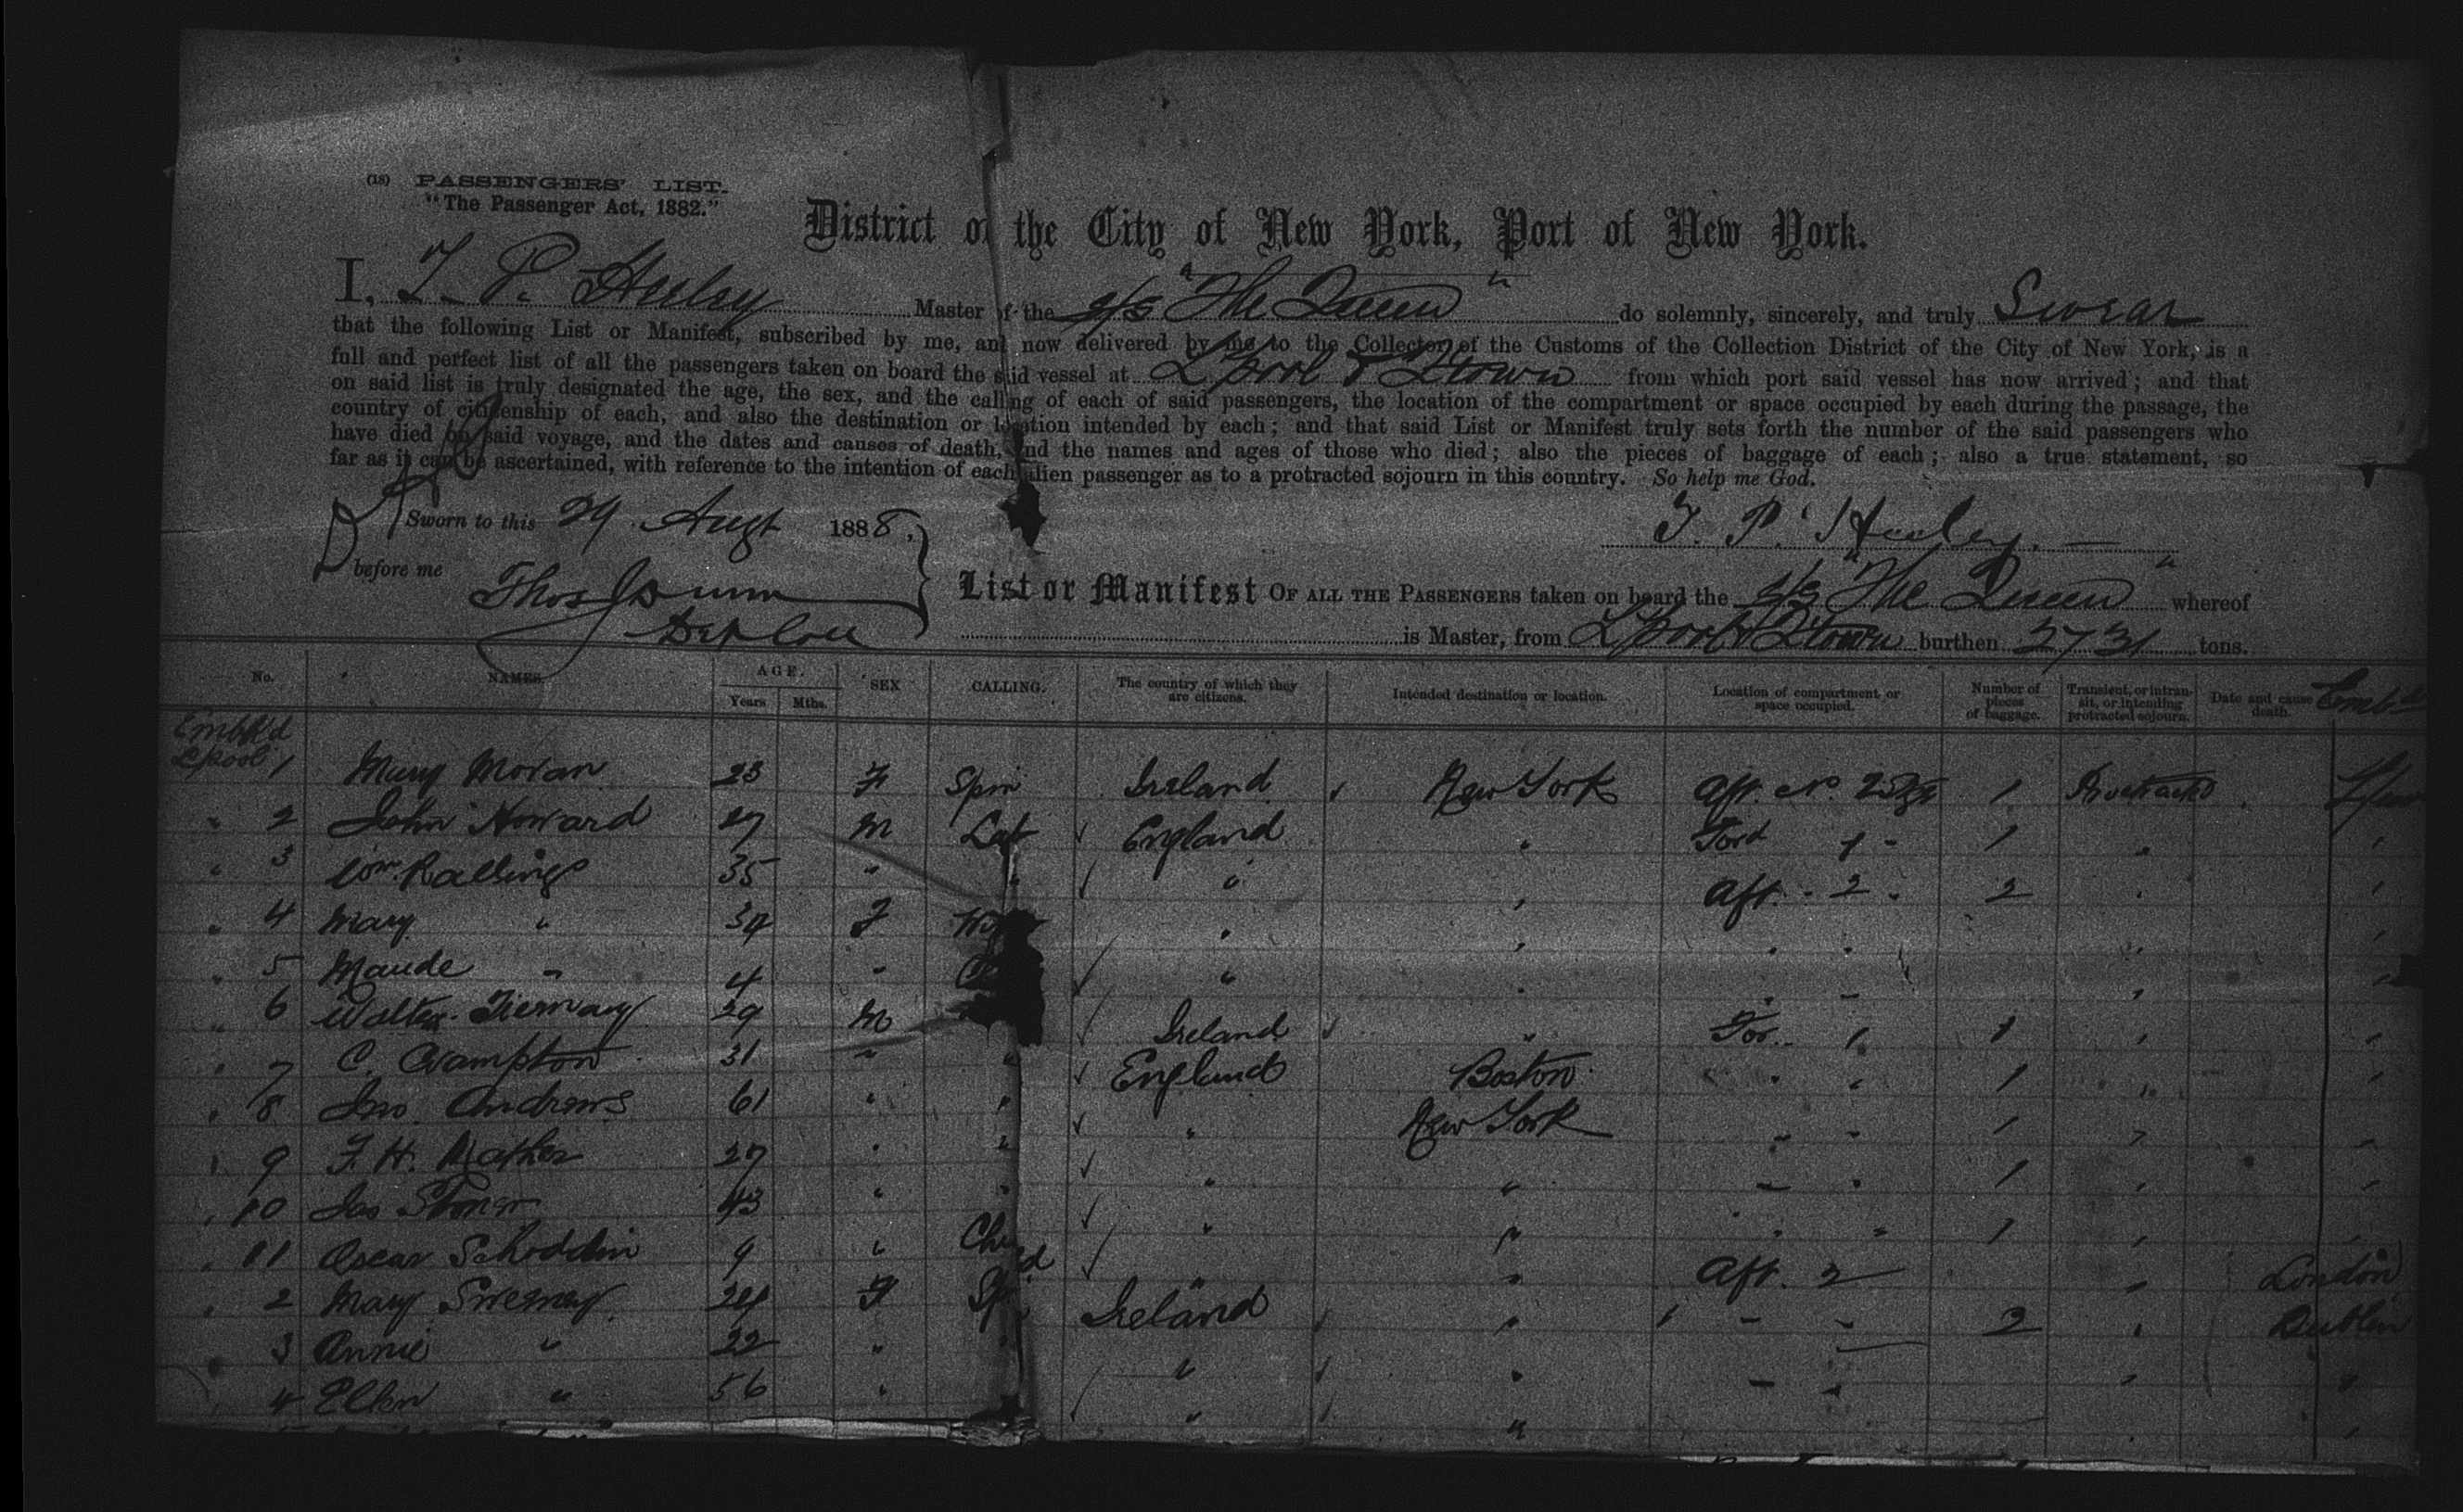 (18) PASSENGERS' LIST.
"The Passenger Act, 1882."
District of the City of New York, Port of New York.
I, Master of the s/s "The Queen" do solemnly, sincerely, and truly Swear
that the following List or Manifest, subscribed by me, and now delivered by me to the Collector of the Customs of the Collection District of the City of New York, is a
full and perfect list of all the passengers taken on board the said vessel at L'pool & Qtown from which port said vessel has now arrived; and that
on said list is truly designated the age, the sex, and the calling of each of said passengers, the location of the compartment or space occupied by each during the passage, the
country of citizenship of each, and also the destination or location intended by each; and that said List or Manifest truly sets forth the number of the said passengers who
have died on said voyage, and the dates and causes of death, and the names and ages of those who died; also the pieces of baggage of each; also a true statement, so
far as it can be ascertained, with reference to the intention of each alien passenger as to a protracted sojourn in this country. So help me God.
Sworn to this 29 Augt 1888.
before me Thos
T. P. Heeley.
List or Manifest OF ALL THE PASSENGERS taken on board the s/s "The Queen" whereof
is Master, from L'pool & Qtown burthen tons.
No. NAMES. AGE. Years Mths. SEX CALLING. The country of which they are citizens. Intended destination or location. Location of compartment or space occupied. Number of pieces of baggage. Transient, or intransit, or intending protracted sojourn. Date and cause death.
Embk'd
Lpool 1 Mary Moran 23 F Spin Ireland New York Aft. No. 2 1 Protracted
" 2 John Howard 27 M Lab England " Ford 1 - 1 "
" 3 Wm Rallings 35 " " " " Aft. - 2 - 2 "
" 4 Mary " 34 F " " " " "
" 5 Maude " 4 " " " " " "
" 6 Walter 29 M Ireland " For. 1 1 "
" 7 C. Crampton 31 " " England Boston " " 1 "
" 8 Jno. Andrews 61 " " " New York " " 1 "
" 9 F. H. Mather 27 " " " " " " 1 "
" 10 Jas 43 " " " " " " 1 "
" 11 Oscar 9 " Child " " Aft. 2 " London
" 2 Mary Sweeney 24 F Sp Ireland " " " 2 " Dublin
" 3 Annie " 22 " " " " " " " "
4 Ellen " 56 " " " "